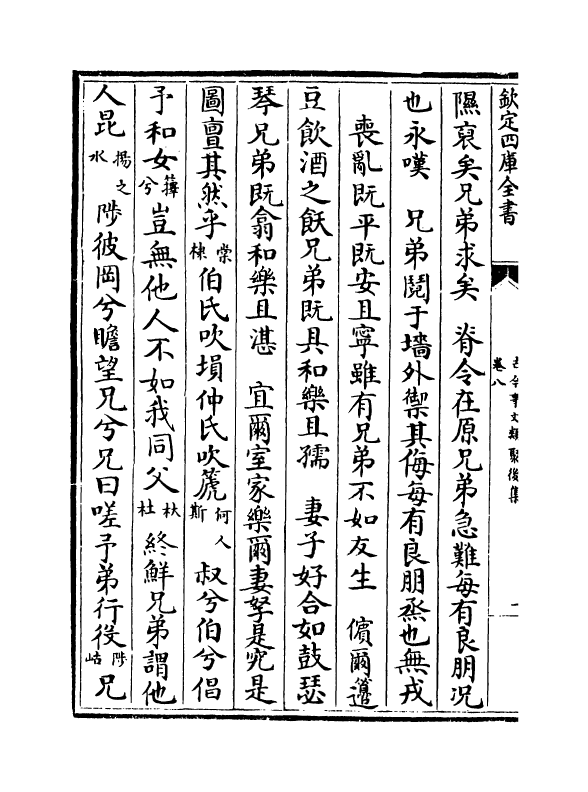 欽定四庫全書
古今事文類聚後集
卷八
二
隰裒矣兄弟求矣　脊令在原兄弟急難每有良朋况
也永嘆　兄弟䦧于墻外禦其侮每有良朋烝也無戎
喪亂既平既安且寧雖有兄弟不如友生　儐爾籩
豆飲酒之飫兄弟既具和樂且孺　妻子好合如鼓瑟
琴兄弟既翕和樂且湛　宜爾室家樂爾妻孥是究是
圖亶其然乎棠棣伯氏吹塤仲氏吹篪何人斯　叔兮伯兮倡
予和女蘀兮豈無他人不如我同父杕杜　終鮮兄弟謂他
人昆揚之水　陟彼岡兮瞻望兄兮兄曰嗟予弟行役陟岵兄